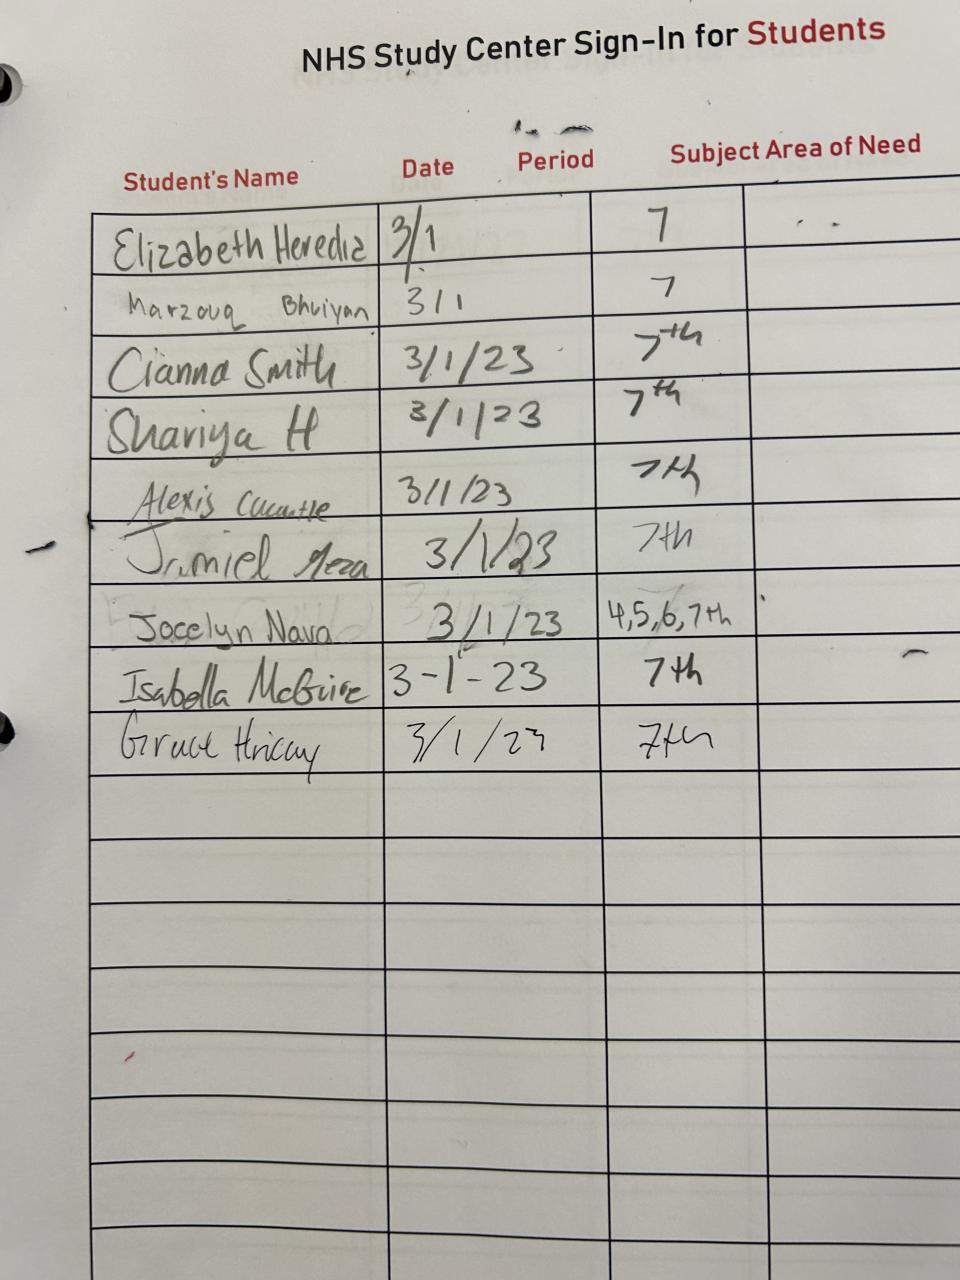 NHS Study Center Sign-In for Students
Student's Name Date Period Subject Area of Need
Elizabeth Heredia 3/1 7
Marzouq Bhuiyan 3/1 7
Cianna Smith 3/1/23 7th
Shariya H 3/1/23 7th
Alexis 3/1/23 7th
Jamiel Meza 3/1/23 7th
Jocelyn Nava 3/1/23 4,5,6,7th
Isabella McGuire 3-1-23 7th
Grace 3/1/23 7th